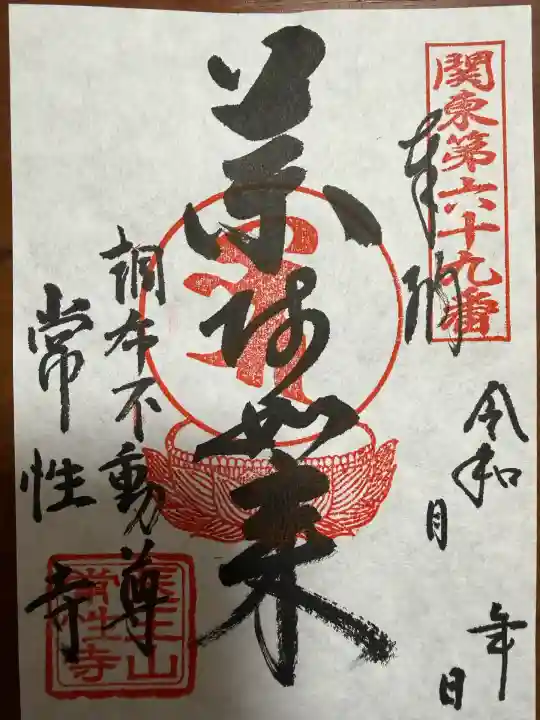 関東第六十九番
奉納
令和 年
月 日
薬師如来
調布不動尊
常性寺
医王山
常性寺